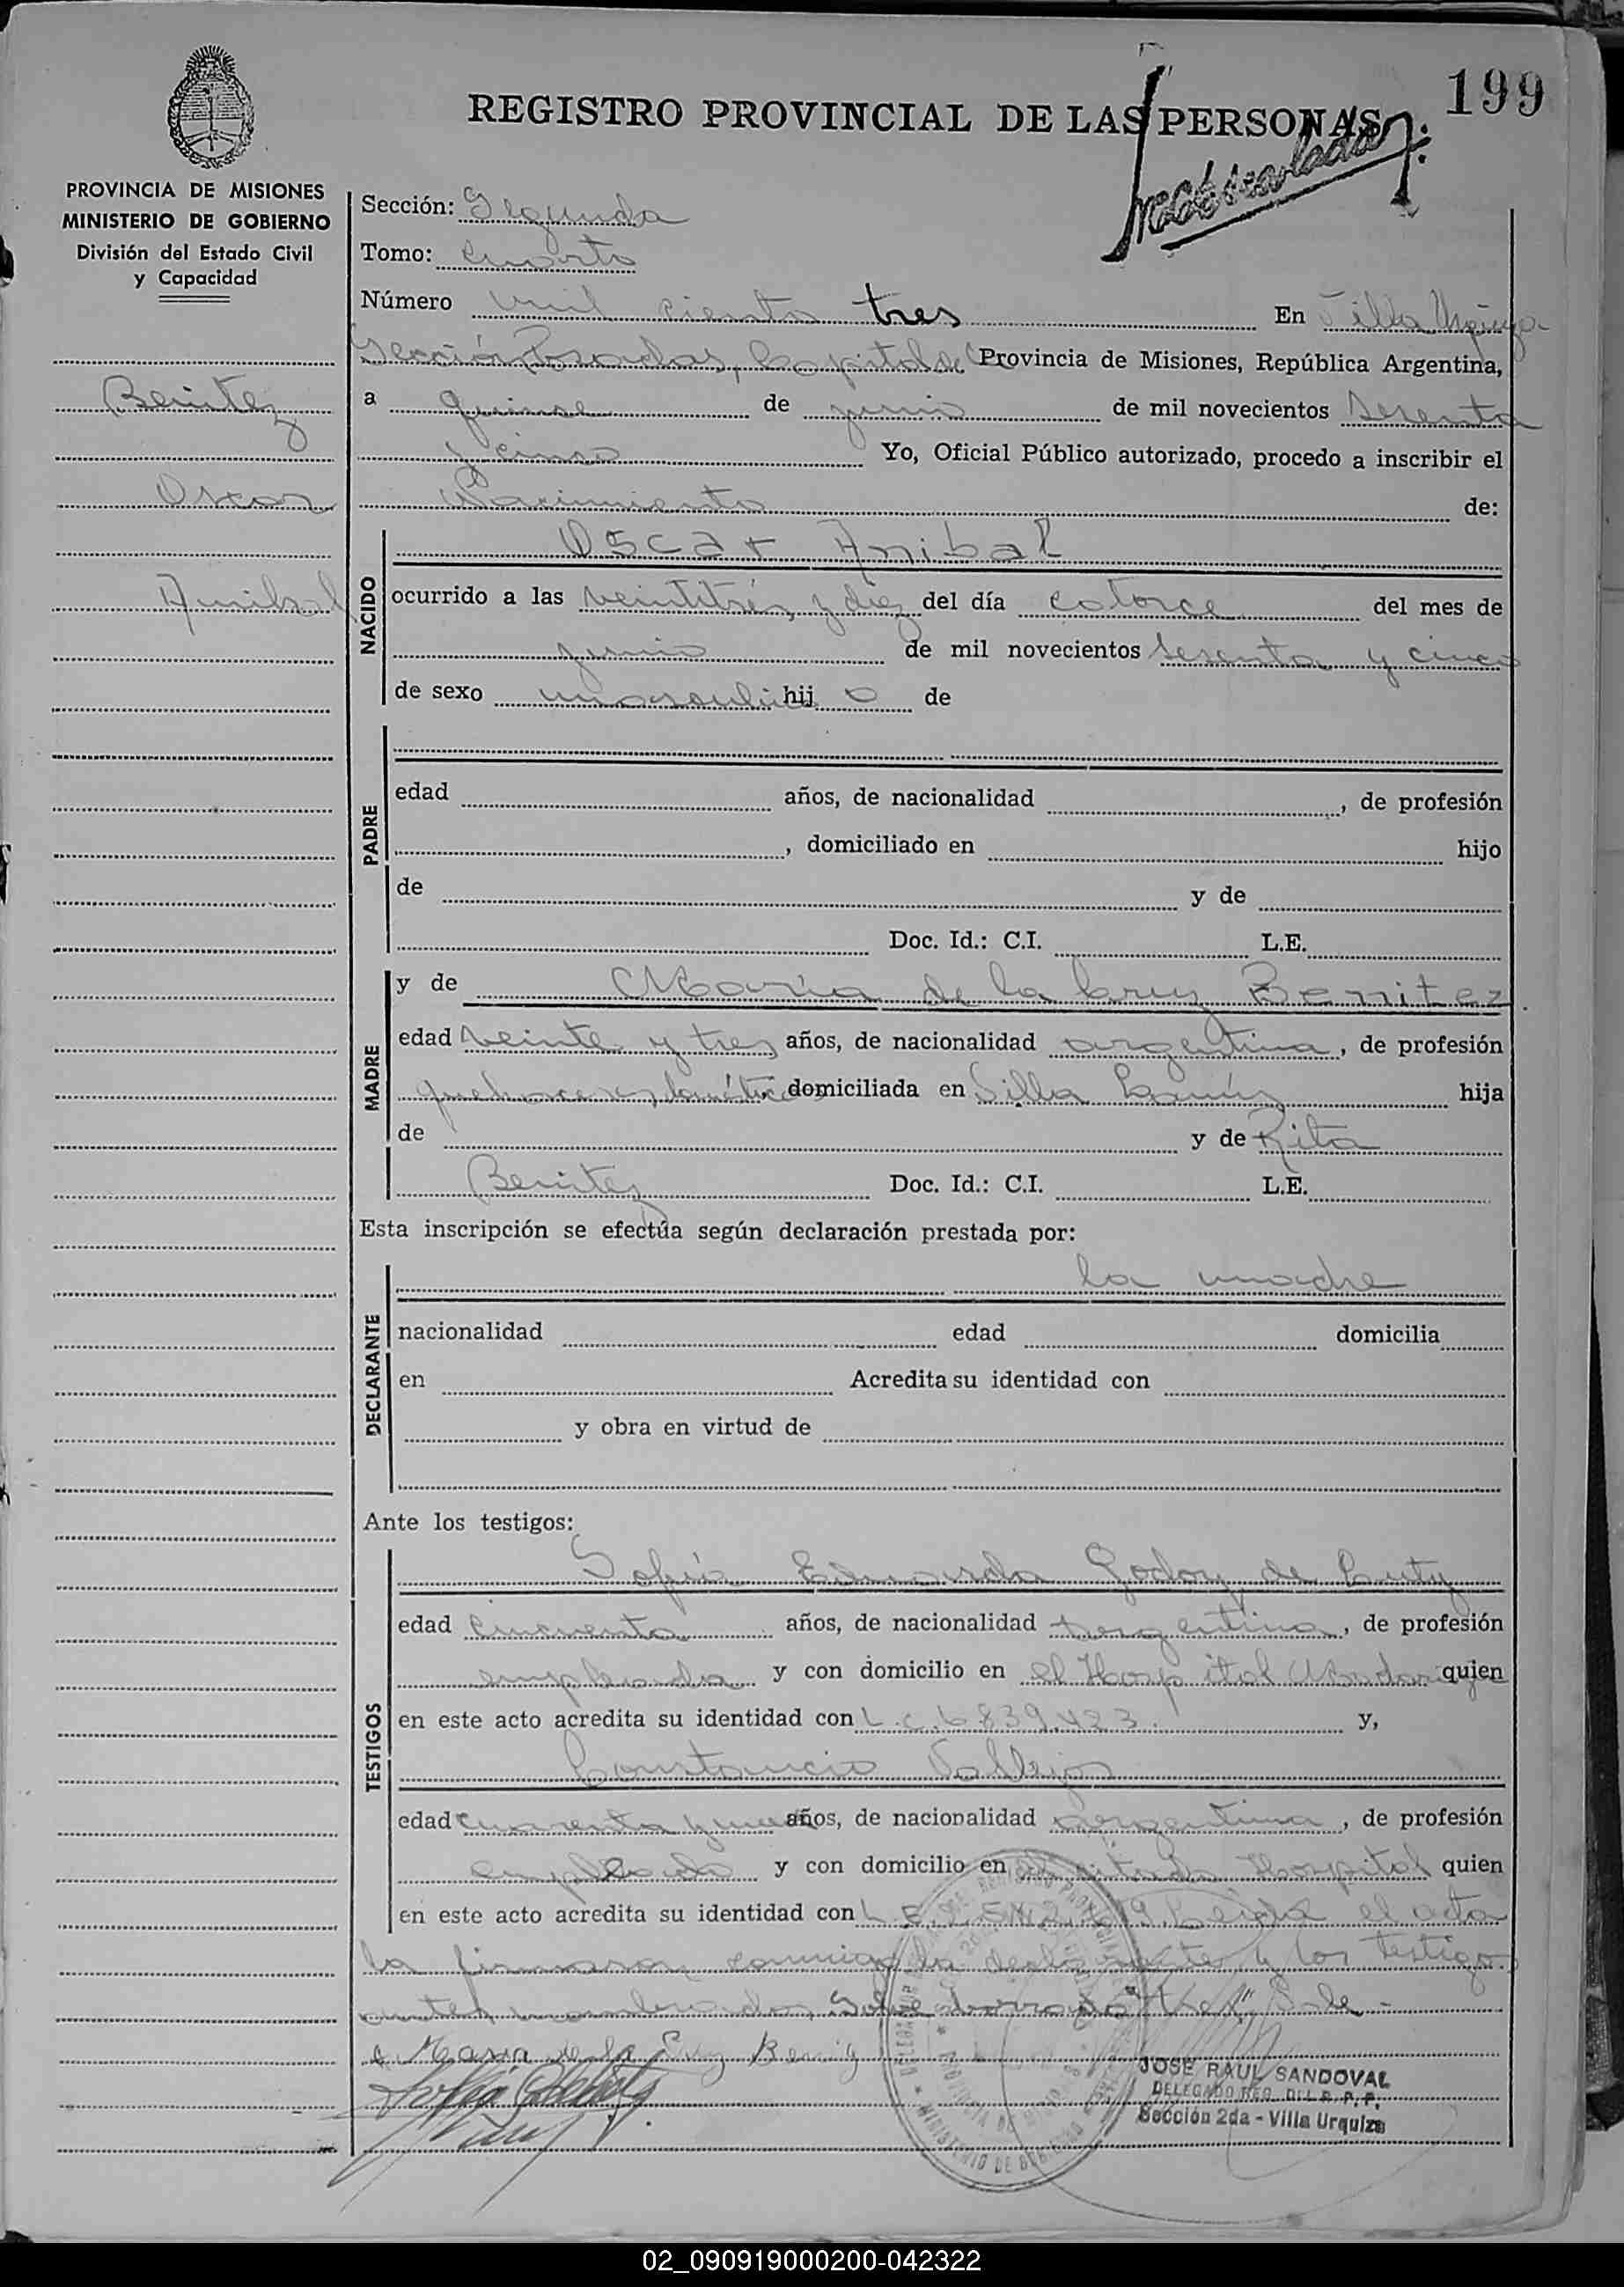 199
REGISTRO PROVINCIAL DE LAS PERSONAS
PROVINCIA DE MISIONES
MINISTERIO DE GOBIERNO
División del Estado Civil
y Capacidad
Benitez
Oscar
Anibal
Sección: Segunda
Tomo: Cuarto
Número mil ciento tres En Villa
Sección Posadas, Capital de Provincia de Misiones, República Argentina,
a quince de junio de mil novecientos sesenta
y cinco Yo, Oficial Público autorizado, procedo a inscribir el
Nacimiento de:
NACIDO
Oscar Anibal
ocurrido a las veintitrés y diez del día catorce del mes de
junio de mil novecientos sesenta y cinco
de sexo masculino hij o de
PADRE
edad años, de nacionalidad , de profesión
, domiciliado en hijo
de y de
Doc. Id.: C.I. L.E.
MADRE
y de Maria de la Cruz Benitez
edad veinte y tres años, de nacionalidad argentina, de profesión
quehaceres domésticos domiciliada en Villa Lanús hija
de y de Rita
Benitez Doc. Id.: C.I. L.E.
Esta inscripción se efectúa según declaración prestada por:
DECLARANTE
la madre
nacionalidad edad domicilia
en Acredita su identidad con
y obra en virtud de
Ante los testigos:
TESTIGOS
Sofia Eduarda Godoy de
edad cincuenta años, de nacionalidad Argentina, de profesión
empleada y con domicilio en el Hospital Madariaga quien
en este acto acredita su identidad con L.C. 6.839.423. y,
Constancio Vallejos
edad cuarenta y años, de nacionalidad argentina, de profesión
empleado y con domicilio en el citado Hospital quien
en este acto acredita su identidad con L.E. Leida el acta
la firmaron conmigo la declarante y los testigos
antes nombrados. Sobre borrado Vale -
Maria de la Cruz Beniz
JOSE RAUL SANDOVAL
DELEGADO REG. DEL R. P. P.
Sección 2da - Villa Urquiza
02_090919000200-042322